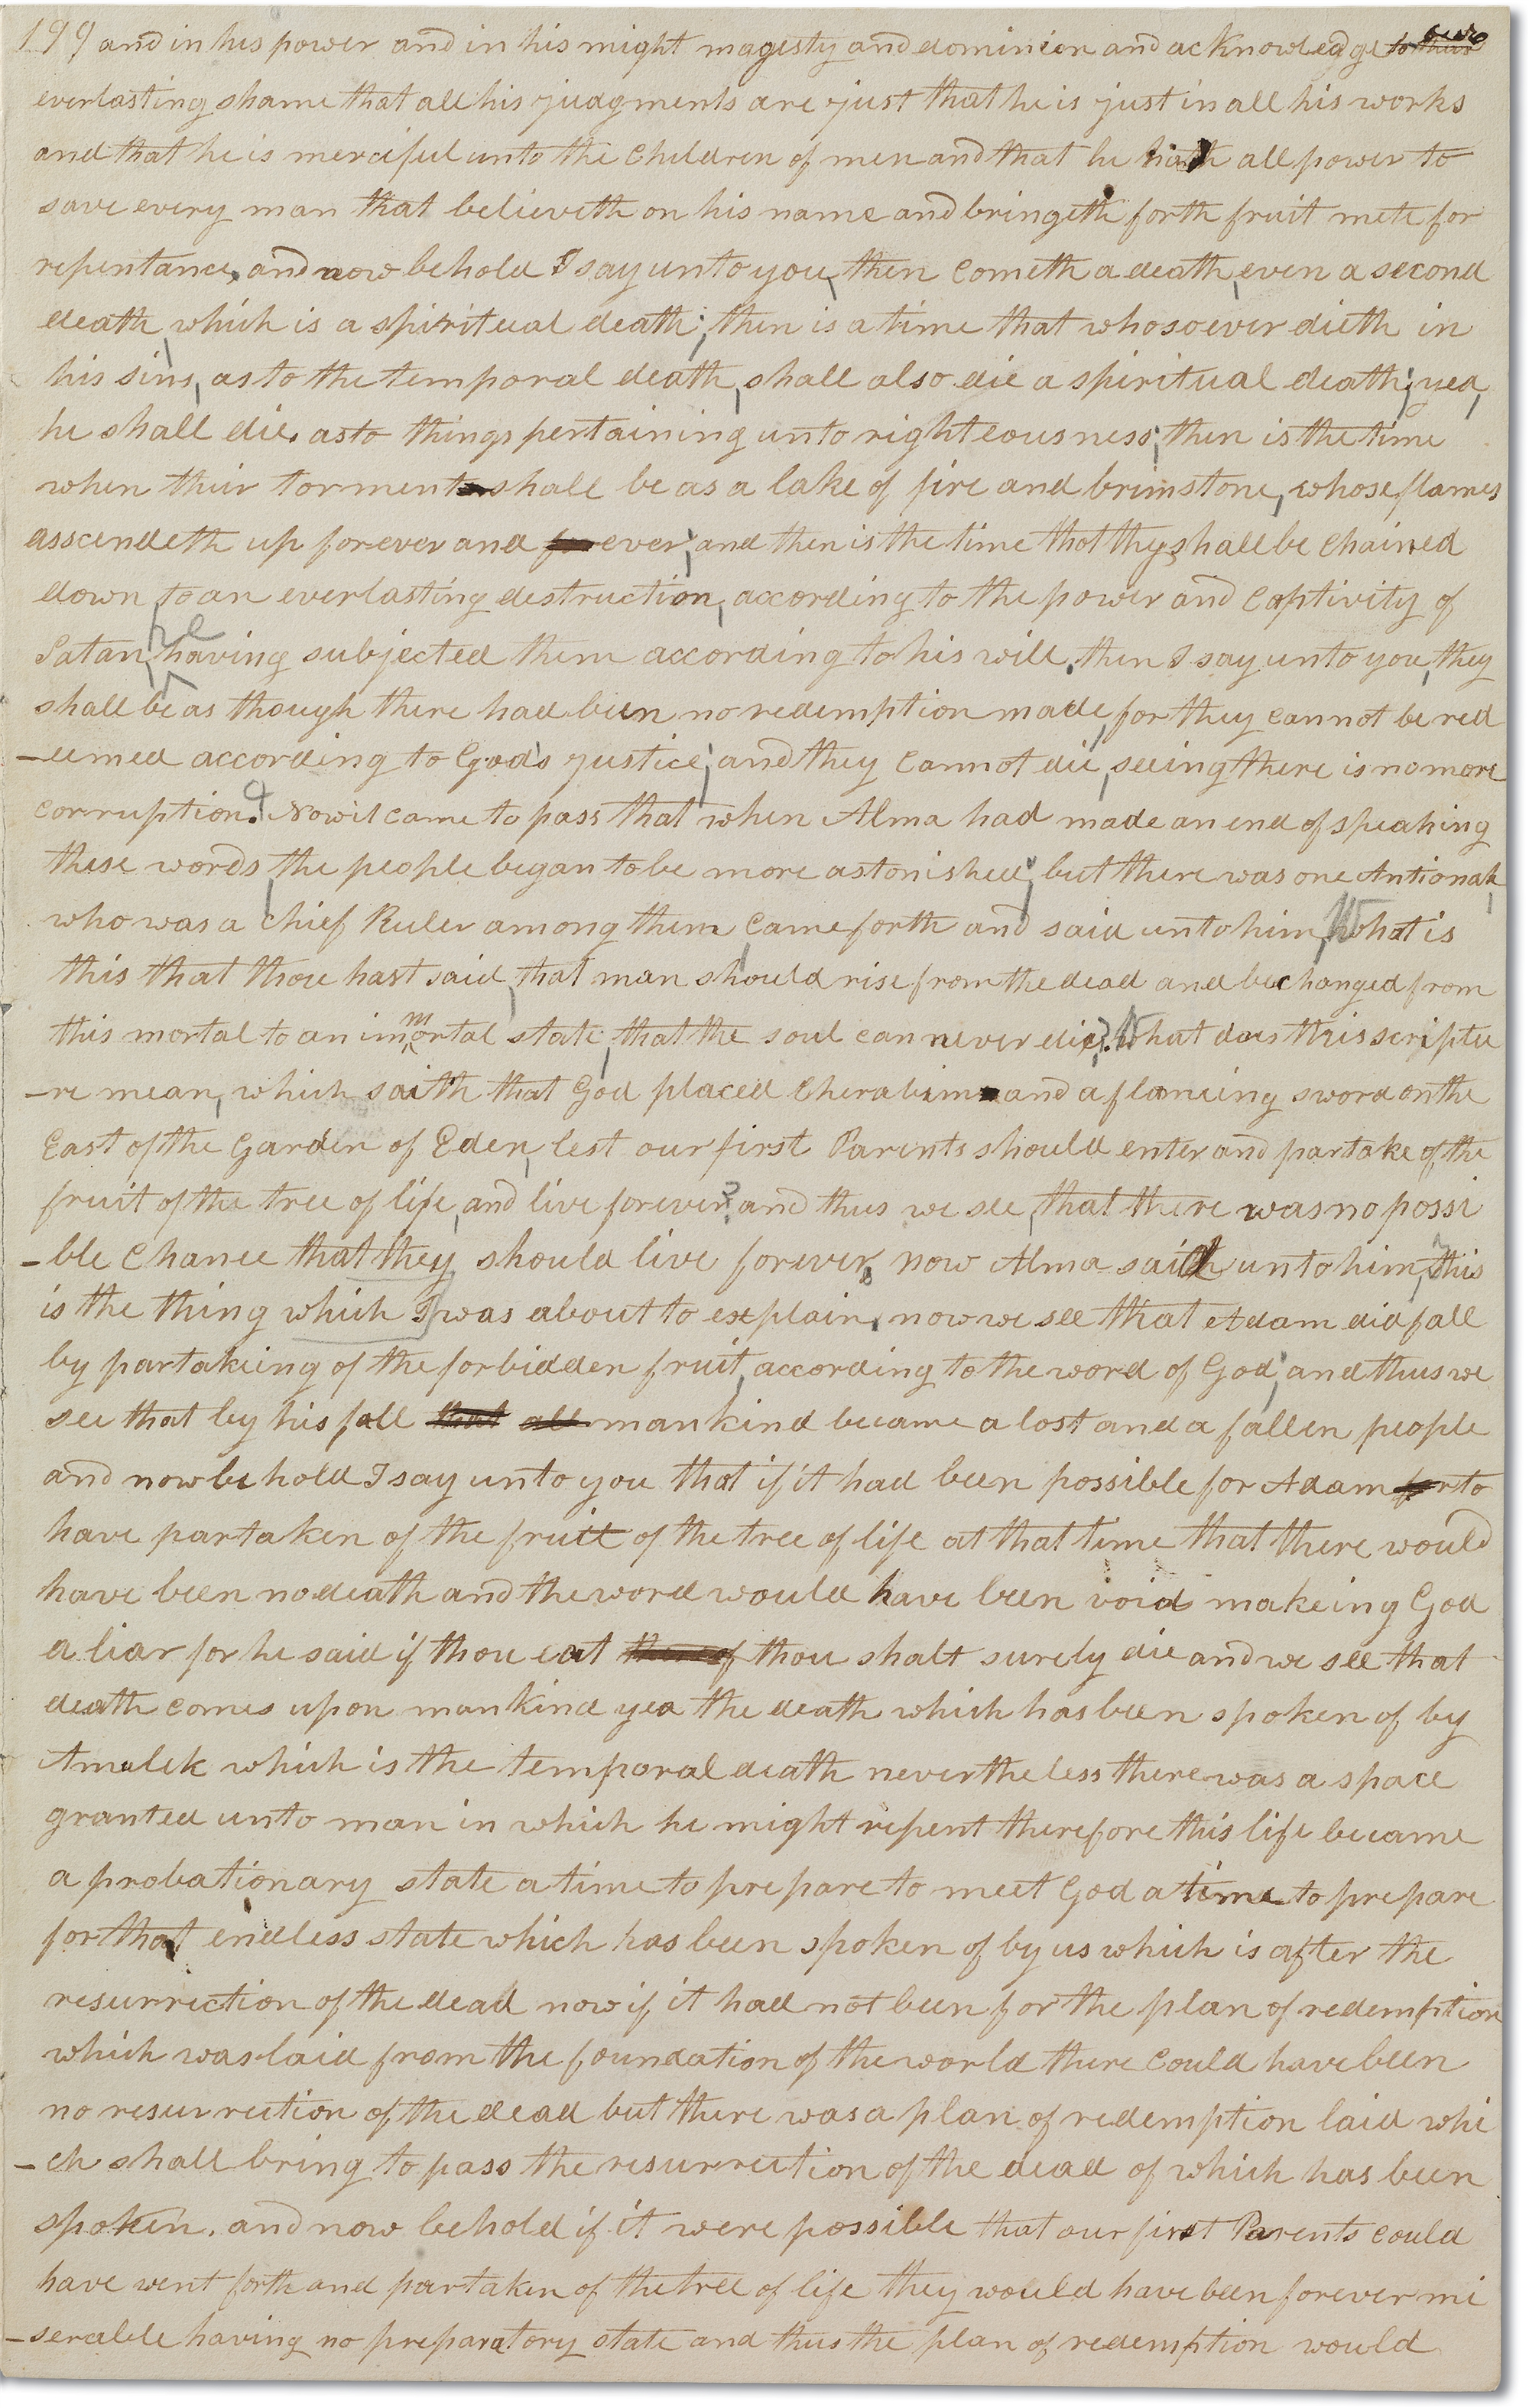 199 and in his power and in his might magesty and dominion and acknowledge to thair our
everlasting shame that all his judgments are just that he is just in all his works
and that he is merciful unto the Children of men and that he hath all power to
save every man that believeth on his name and bringeth forth fruit mete for
repentance, and now behold I say unto you, then cometh a death, even a second
death, which is a spiritual death; then is a time that whosoever dieth in
his sins, as to the temporal death, shall also die a spiritual death; yea,
he shall die, as to things pertaining unto righteousness; then is the time
when their torments shall be as a lake of fire and brimstone, whose flames
asscendeth up forever and for ever; and then is the time that they shall be Chained
down to an everlasting destruction, according to the power and Captivity of
Satan, he having subjected them according to his will. then I say unto you, they
shall be as though there had been no redemption made, for they cannot be red
-eemed according to God's justice; and they Cannot die, seeing there is no more
corruption. Now it came to pass that when Alma had made an end of speaking
these words, the people began to be more astonished; but there was one Antionah,
who was a chief Ruler among them Came forth and said unto him, What is
this that thou hast said, that man should rise from the dead and be changed from
this mortal to an immortal state, that the soul can never die? What does this scriptu
-re mean, which saith that God placed Cherubims and a flameing sword on the
East of the Garden of Eden, lest our first Parents should enter and partake of the
fruit of the tree of life, and live forever? and thus we see, that there was no possi
-ble Chance that they should live forever. now Alma said unto him, this
is the thing which I was about to explain, now we see that Adam did fall
by partakeing of the forbidden fruit, according to the word of God; and thus we
see that by his fall that all mankind became a lost and a fallen people
and now behold I say unto you that if it had been possible for Adam for to
have partaken of the fruit of the tree of life at that time that there would
have been no death and the word would have been void makeing God
a liar for he said if thou eat thereof thou shalt surely die and we see that
death comes upon mankind yea the death which has been spoken of by
Amulek which is the temporal death nevertheless there was a space
granted unto man in which he might repent therefore this life became
a probationary state a time to prepare to meet God a time to prepare
for that endless state which has been spoken of by us which is after the
resurrection of the dead now if it had not been for the plan of redemption
which was laid from the foundation of the world there Could have been
no resurrection of the dead but there was a plan of redemption laid whi
-ch shall bring to pass the resurrection of the dead of which has been
spoken. and now behold if it were possible that our first Parents could
have went forth and partaken of the tree of life they would have been forever mi
-serable having no preparatory state and thus the plan of redemption would